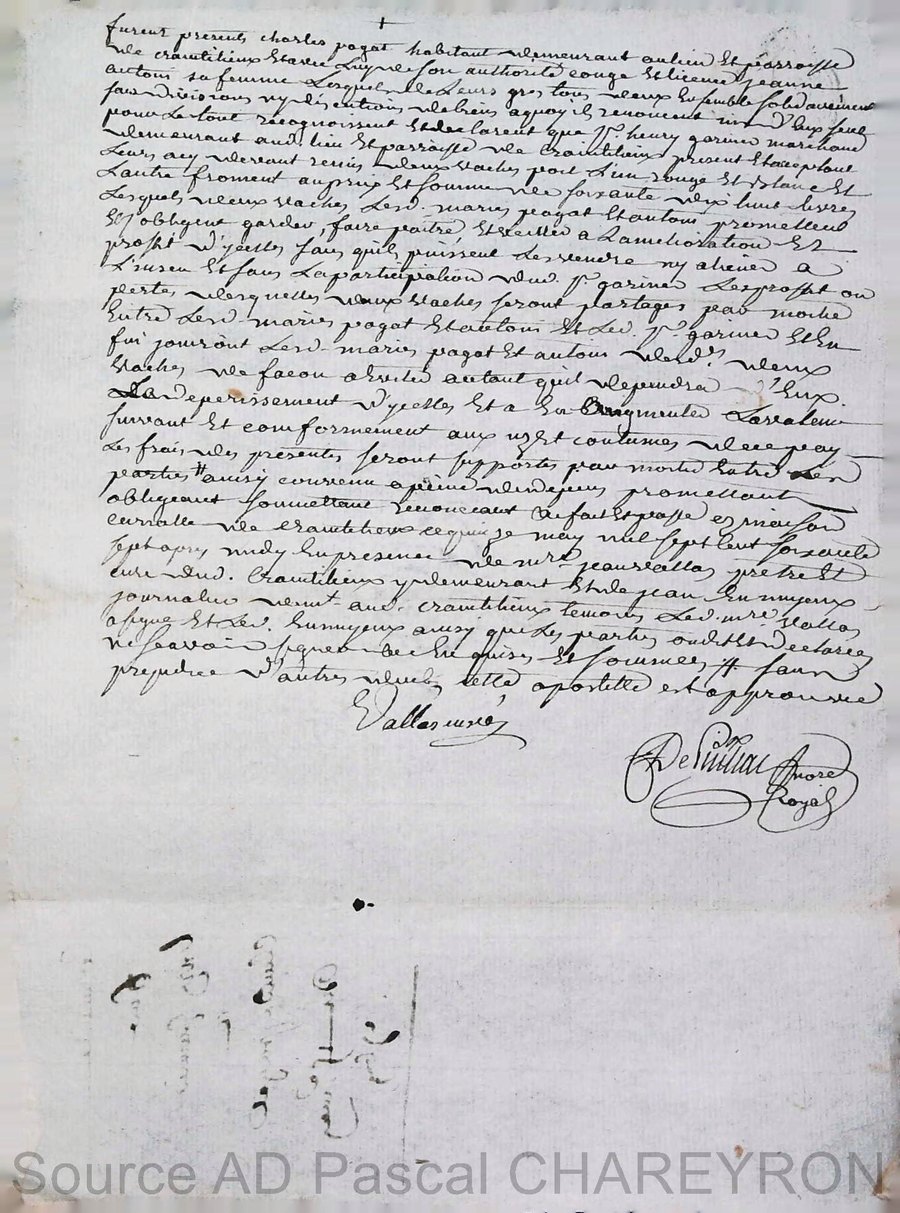 furent presents charles pagat habitant demeurant au lieu et parroisse
de craintilieux et avec luy de son authorité conge et licence jeanne
antoni sa femme lesquels de leurs gres tous deux ensemble solidairement
sans divisions ny discutions de biens a quoy ils renoncent un d'eux seul
pour le tout recognoissent et declarent que sr. henry garinier marchand
demeurant aud. lieu et parroisse de craintilieux present et acceptant
leurs a cy devant remis deux vaches poil l'un rouge et blanc et
l'autre froment au prix et somme de soixante dix huit livres
lesquels deux vaches lesd. maries pagat et antoni promettent
et s'obligent garder, faire paitre et veiller a l'amelioration et
profit d'ycelles sans qu'ils puissent les vendre ny aliener a
l'inscu et sans la participation dud. sr. garinier les profit ou
pertes desquelles deux vaches seront partages par moitié
entre lesd. maries pagat et antoni et led. sr garinier et en
fin jouiront lesd. maries pagat et antoni desd. deux
vaches de facon a eviter autant qu'il dependra d'eux
le deperissement d'ycelles et a en augmenter la valeur
suivant et conformement aux us et coutumes de ce pay
les frais des presentes seront supportes par moitié entre les
parties # ainsy convenu a peine de depens promettant
obligeant soumettant renonceant &a fait et passé es maison
curialle de craintilieux ce quinze may mil sept cent soixante
sept apres midy en presence de mre. jean vallas pretre et
curé dud. craintilieux y demeurant et de jean ennuyeux
journalier demt. aud. craintilieux temoins led. mre. vallas
a signé et led. ennuyeux ainsy que les parties ont dit et declaré
ne scavoir signer de ce enquises et sommées # sans
prejudice d'autres deubs cette apostille est approuvée
Vallas curé
notre
Royal
Source AD Pascal CHAREYRON